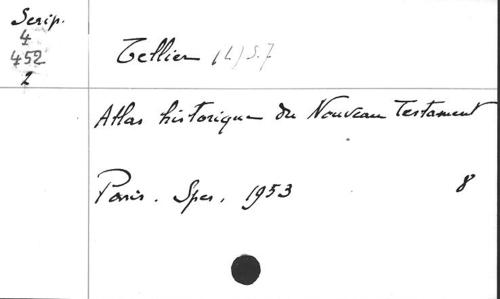 Scrip.
4
452
2
Tellier (L) S.J
Atlas historique du Nouveau Testament
Paris. Spes. 1953 8